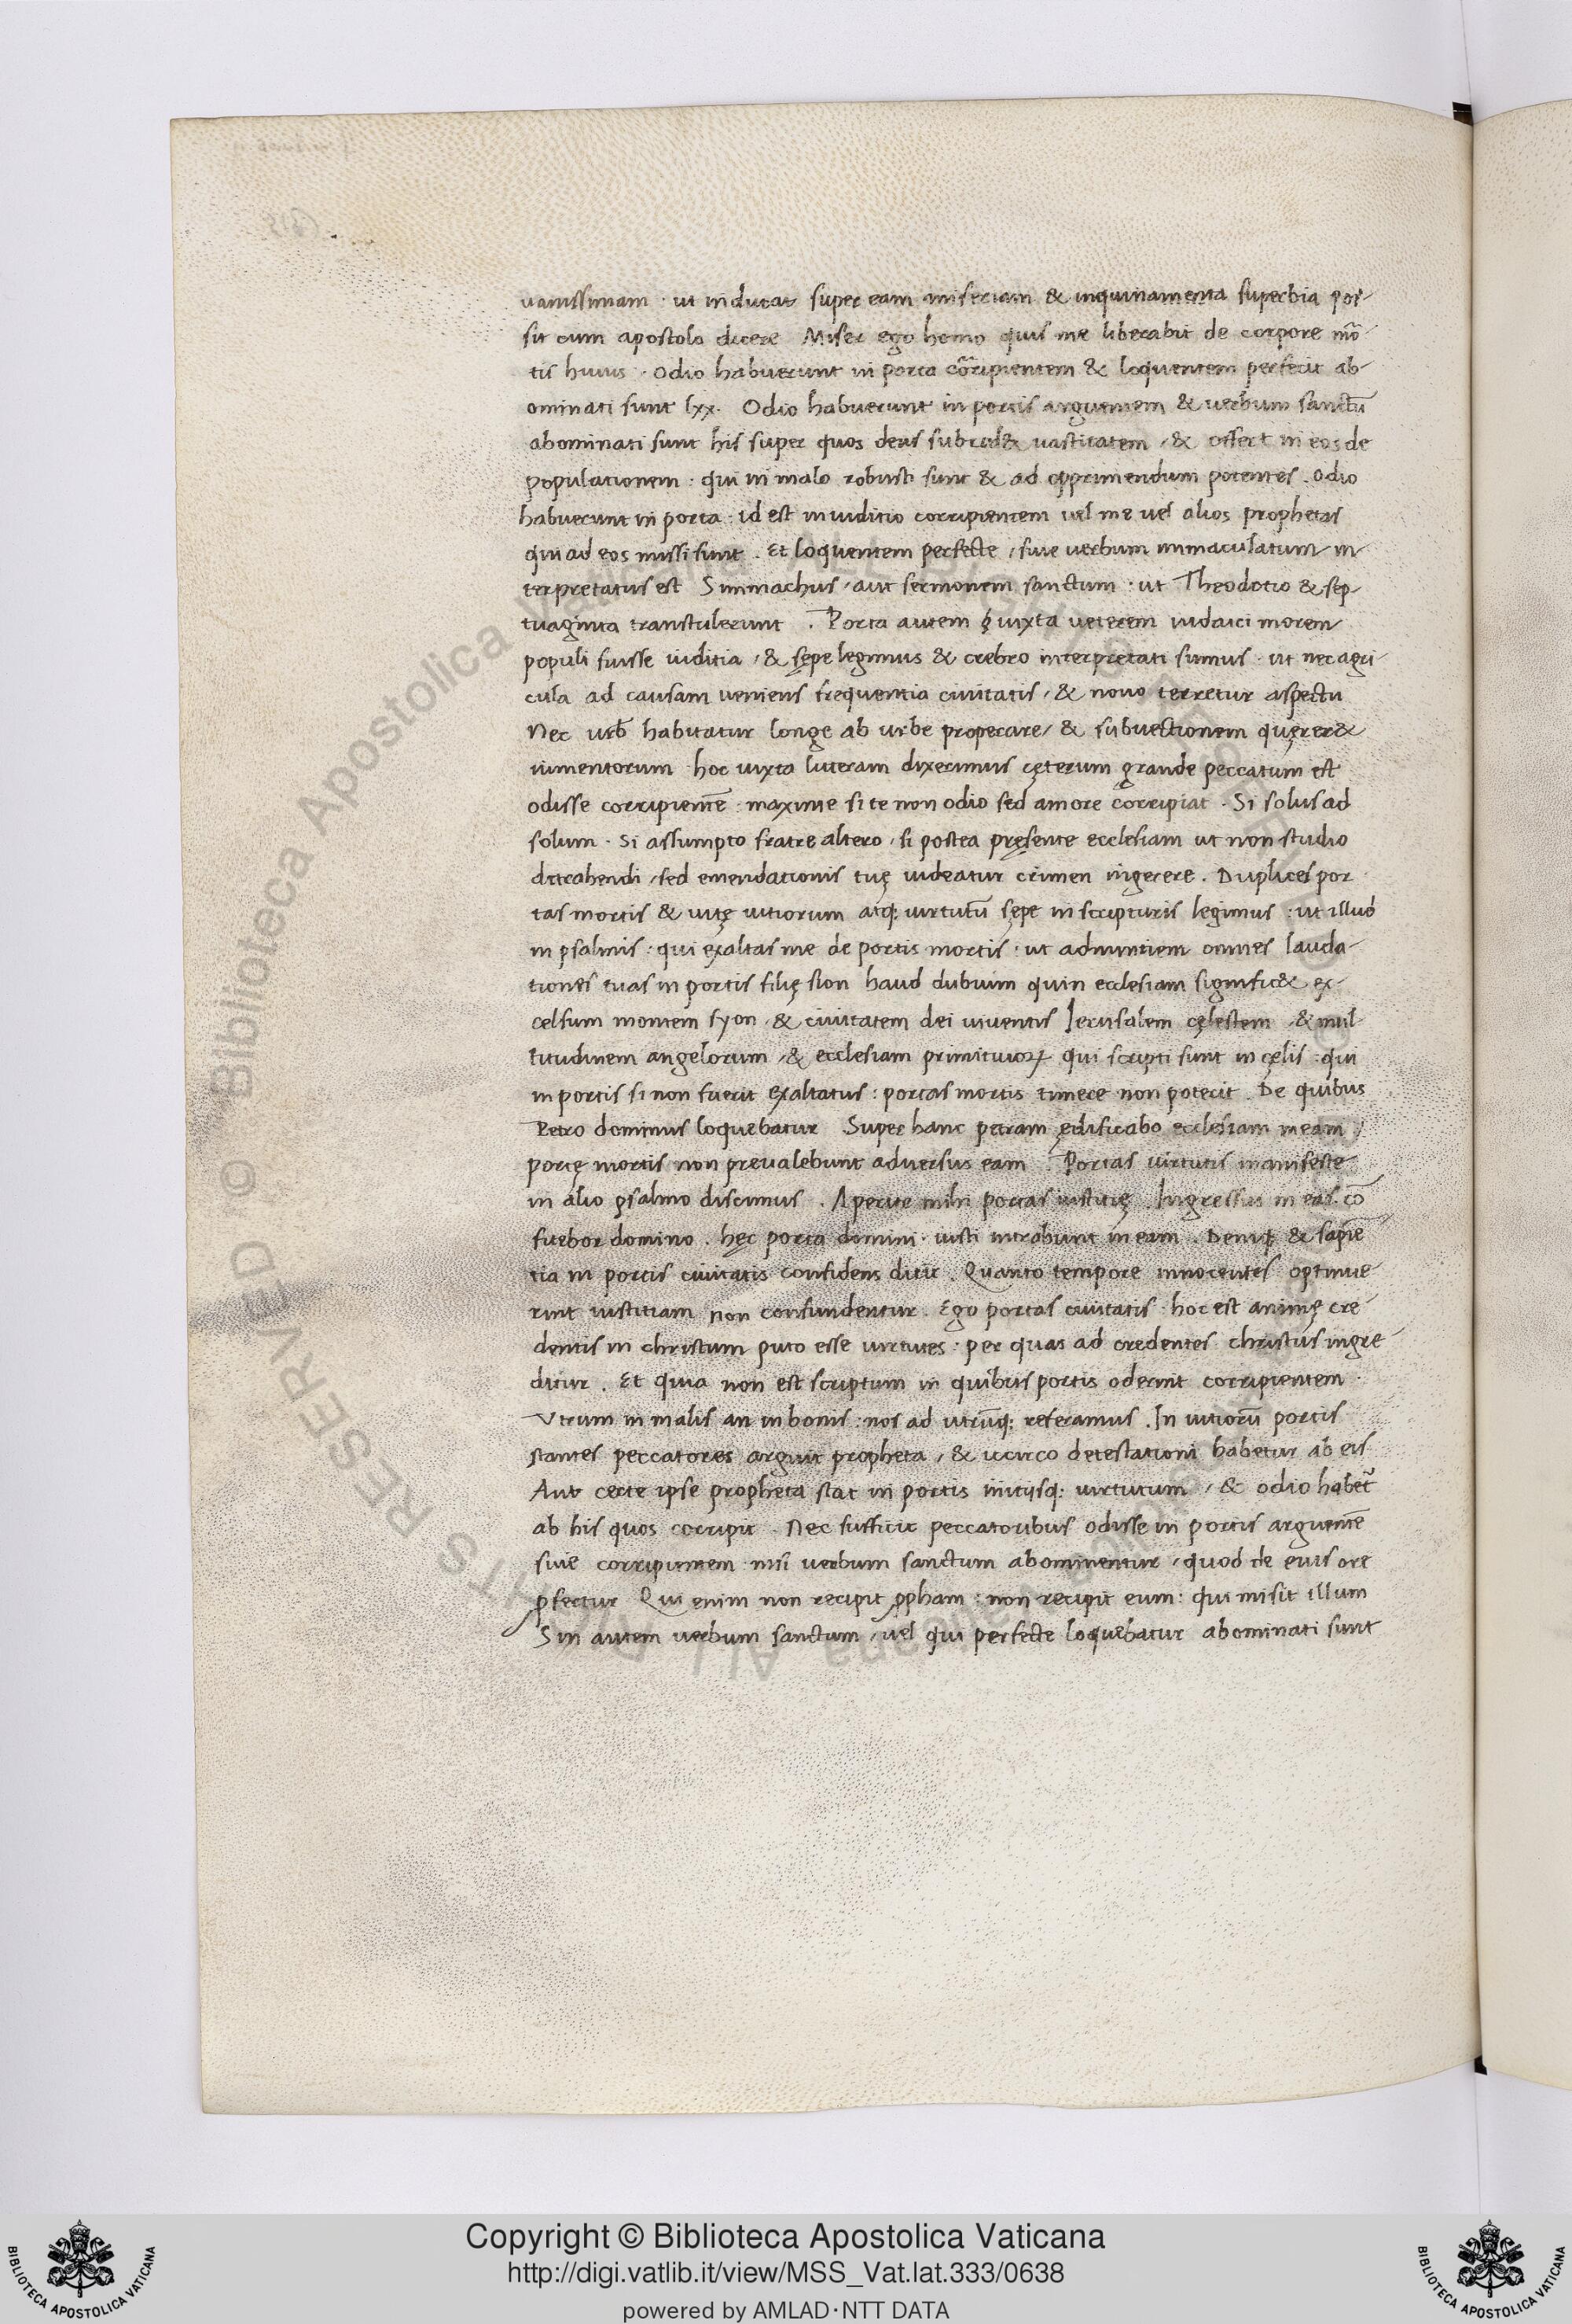 uanissimam · ut inducat super eam miseriam & inquinamenta superbia pos-
sit cum apostolo dicere Miser ego homo quis me liberabit de corpore mō-
tis huius · Odio habuerunt in porta cōripientem & loquentem perfecit ab-
ominati sunt lxx. Odio habuerunt in portis arguentem & uerbum sanctū
abominati sunt his super quos deus subrid& uastitatem, & offert in eos de
populationem : qui in malo robusti sunt & ad opprimendum potentes . Odio
habuerunt in porta · id est in iuditio corripientem uel me uel alios prophetas
qui ad eos missi sunt . Et loquentem perfecte, siue uerbum immaculatum in
terpretatus est Simmachus, aut sermonem sanctum · ut Theodotio & sep-
tuaginta transtulerunt . Porta autem iuxta ueterem iudaici morem
populi fuisse iuditia, & sępe legimus & crebro interpretati sumus · ut nec agri-
cula ad causam ueniens frequentia ciuitatis, & nouo terretur aspectu
Nec urb habitatur longe ab urbe properare, & subuectionem quęrer&
iumentorum hoc iuxta litteram dixerimus cęterum grande peccatum est
odisse corripientē : maxime si te non odio sed amore corripiat . Si solus ad
solum . Si assumpto fratre altero, si postea pręsente ecclesiam ut non studio
detrahendi, sed emendationis tuę uideatur crimen ingerere . Duplices por
tas mortis & uitę uitiorum atq; uirtutū sępe in scripturis legimus : ut illud
in psalmis : qui exaltas me de portis mortis · ut adnuntiem omnes lauda-
tiones tuas in portis filię sion haud dubium quin ecclesiam signific& ex-
celsum montem syon, & ciuitatem dei uiuentis Ierusalem cęlestem, & mul
titudinem angelorum, & ecclesiam primitiuoꝝ qui scripti sunt in cęlis : qui
in portis si non fuerit exaltatus : portas mortis timere non poterit . De quibus
Petro dominus loquebatur Super hanc petram ędificabo ecclesiam meam,
portę mortis non preualebunt aduersus eam . Portas uirtutis manifeste
in alio psalmo discimus . Aperite mihi portas iustitię . Ingressus in eas cō
fitebor domino . hęc porta domini · iusti intrabunt in eam . Deniq; & sapiē
tia in portis ciuitatis confidens dicit . Quanto tempore innocentes optinue
rint iustitiam non confundentur . Ego portas ciuitatis · hoc est animę cre
dentis in christum puto esse uirtutes : per quas ad credentes christus ingre
ditur . Et quia non est scriptum in quibus portis oderint corripientem ·
Vtrum in malis an in bonis : nos ad utrūq; referamus . In uitiorū portis
stantes peccatores arguit propheta, & iccirco detestationi habetur ab eis
Aut certe ipse propheta stat in portis uirtutum, & odio habet̄
ab his quos corripit . Nec sufficit peccatoribus odisse in portis arguentē
siue corripientem nisi uerbum sanctum abominentur, quod de eius ore
ꝓfertur Qui enim non recipit ꝓpham : non recipit eum : qui misit illum
Sin autem uerbum sanctum, uel qui perfecte loquebatur abominati sunt
Copyright © Biblioteca Apostolica Vaticana
http://digi.vatlib.it/view/MSS_Vat.lat.333/0638
powered by AMLAD·NTT DATA
BIBLIOTECA APOSTOLICA VATICANA
BIBLIOTECA APOSTOLICA VATICANA